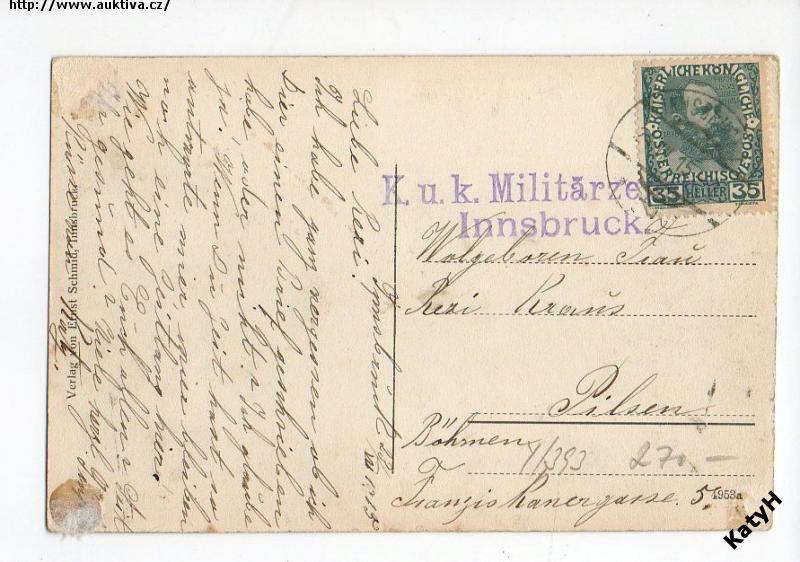 http://www.auktiva.cz/
KAISERLICHEKÖNIGLICHE
OESTERREICHISCHE POST
35 HELLER 35
K. u. k. Militärze
Innsbruck.
Wolgeboren Frau
Rezi Kraus
Pilsen
Böhmen
Franziskanergasse 5.
1/393 270.-
4953a
Innsbruck
Liebe Rezi.
Ich habe ganz vergessen ob ich
Dir einen Brief geschrieben
habe oder nicht. Ich glaube
ja. Wenn Du Zeit hast so
antworte mir, wir bleiben
noch eine Zeitlang hier.
Wie geht es Euch allen?
gesund? Viele
Verlag von Ernst Schmid, Innsbruck.
KatyH